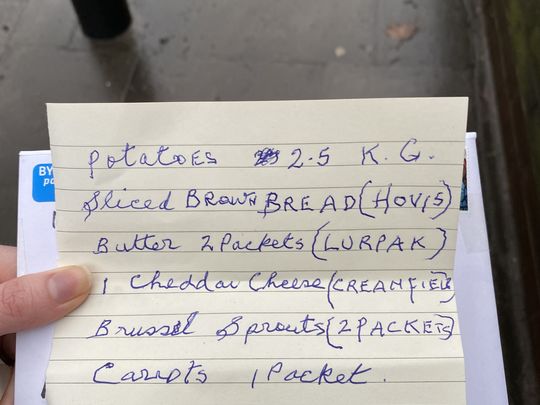 potatoes 2.5 K.G.
Sliced BROWN BREAD (HOVIS)
Butter 2 Packets (LURPAK)
1 Cheddar Cheese (CREAMFIELD)
Brussel Sprouts (2 PACKETS)
Carrots 1 Packet.
BY